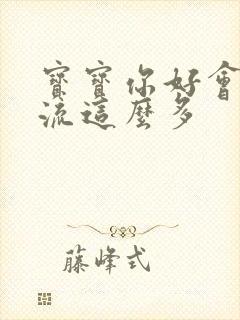 寶寶你好會
流這麼多
藤峰式